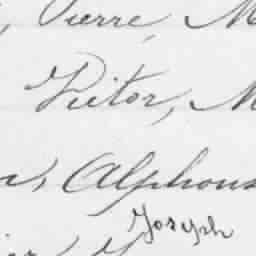 , Pierre, M
Victor, M
, Alphons
Joseph